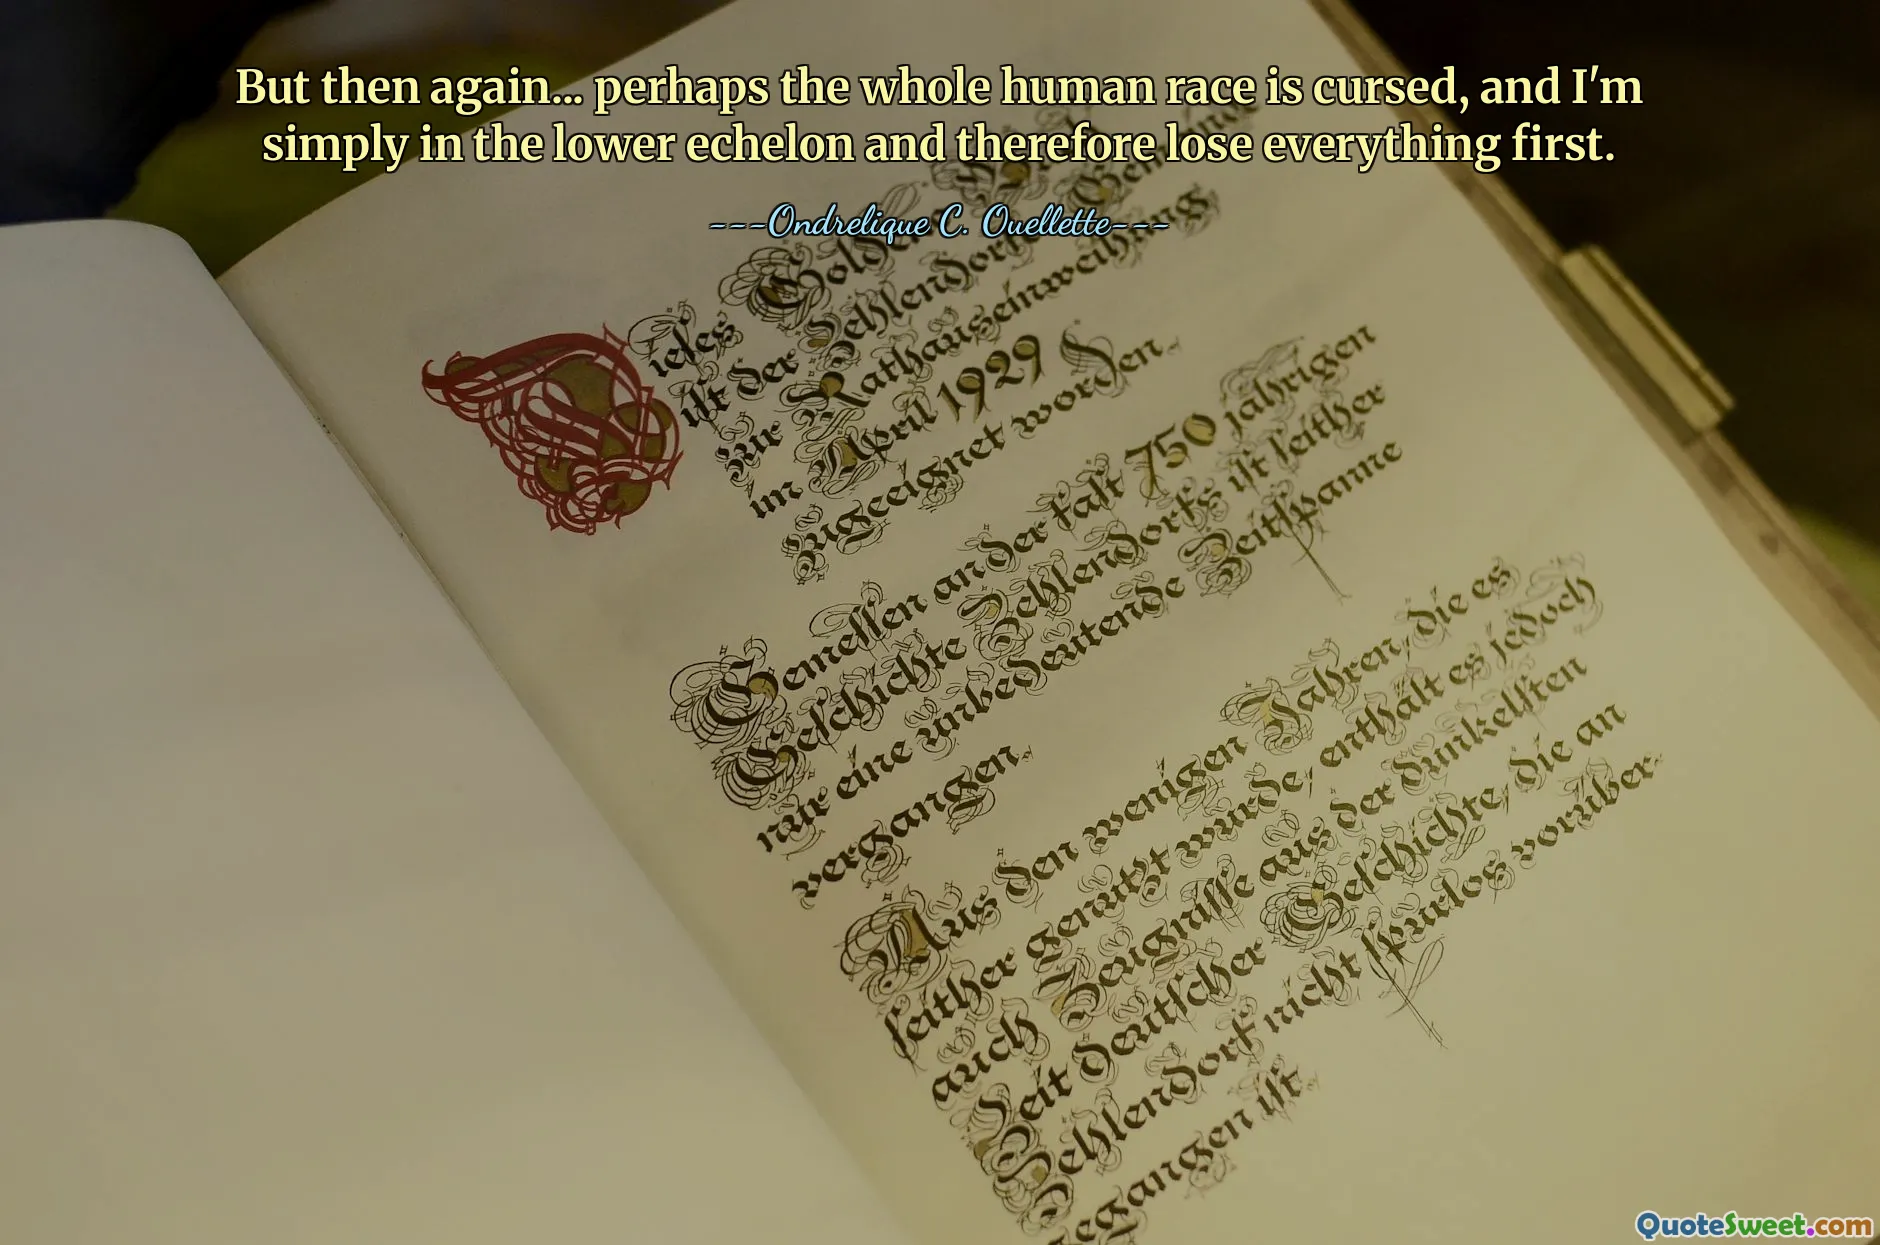 But then again... perhaps the whole human race is cursed, and I'm
simply in the lower echelon and therefore lose everything first.
---Ondrelique C. Ouellette---
Dieſes
iſt der Zehlendorfer
zur Rathauseinweihung
im April 1929
zugeeignet worden.
Gemeſſen an der faſt 750 jährigen
Geſchichte Zehlendorfs iſt ſeither
nur eine unbedeutende Zeitſpanne
vergangen.
Aus den wenigen Jahren, die es
ſeither genutzt wurde, enthält es jedoch
auch Zeugniſſe aus der dunkelſten
Zeit deutſcher Geſchichte, die an
Zehlendorf nicht ſpurlos vorüber
gegangen iſt.
QuoteSweet.com